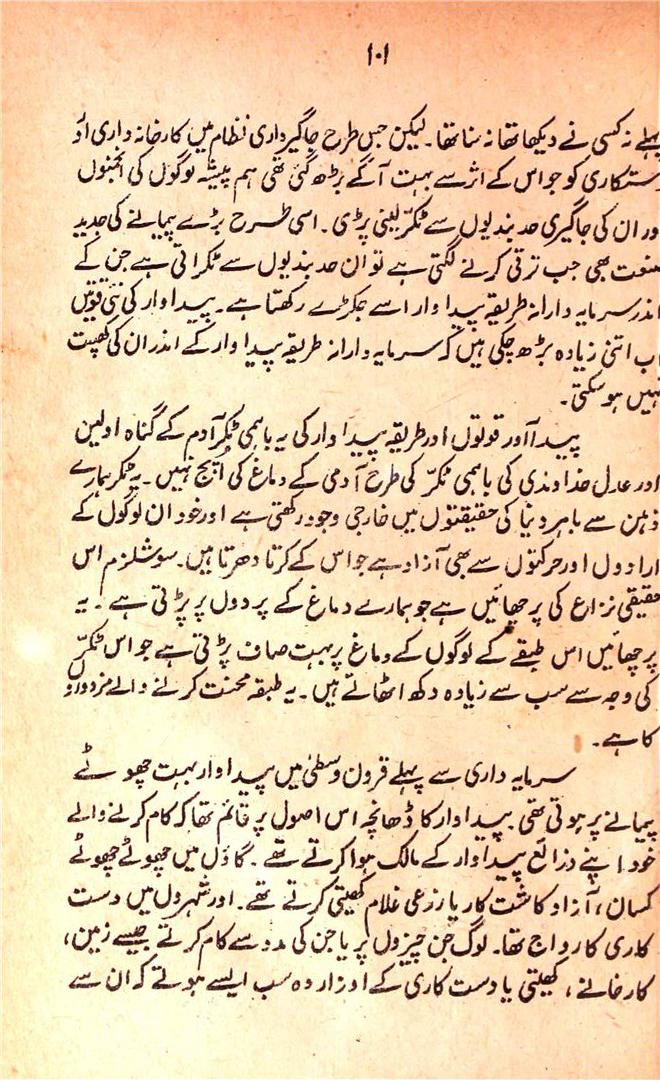 ۱۰۱
پہلے نہ کسی نے دیکھا تھا نہ سنا تھا۔ لیکن جس طرح جاگیرداری نظام میں کارخانہ داری اور
دستکاری کو جو اس کے اثر سے بہت آگے بڑھ گئی تھی ہم پیشہ لوگوں کی انجمنوں
اور ان کی جاگیری حد بندیوں سے ٹکر لینی پڑی۔ اسی طرح بڑے پیمانے کی جدید
صنعت بھی جب ترقی کرنے لگتی ہے تو ان حد بندیوں سے ٹکراتی ہے جن کے
اندر سرمایہ دارانہ طریقہ پیداوار اسے جکڑے رکھتا ہے۔ پیداوار کی نئی قوتیں
اب اتنی زیادہ بڑھ چکی ہیں کہ سرمایہ دارانہ طریقہ پیداوار کے اندر ان کی کھپت
نہیں ہو سکتی۔
پیدا آور قوتوں اور طریقہ پیداوار کی یہ باہمی ٹکر آدم کے گناہ اولین
اور عادل خداوندی کی باہمی ٹکر کی طرح آدمی کے دماغ کی اُپج نہیں۔ یہ ٹکر ہمارے
ذہن سے باہر دنیا کی حقیقتوں میں خارجی وجود رکھتی ہے اور خود ان لوگوں کے
ارادوں اور حرکتوں سے بھی آزاد ہے جو اس کے کرتا دھرتا ہیں۔ سوشلزم اس
حقیقی نزاع کی پرچھائیں ہے جو ہمارے دماغ کے پردوں پر پڑتی ہے۔ یہ
پرچھائیں اس طبقے کے لوگوں کے دماغ پر بہت صاف پڑتی ہے جو اس ٹکر
کی وجہ سے سب سے زیادہ دکھ اٹھاتے ہیں۔ یہ طبقہ محنت کرنے والے مزدوروں
کا ہے۔
سرمایہ داری سے پہلے قرون وسطیٰ میں پیداوار بہت چھوٹے
پیمانے پر ہوتی تھی۔ پیداوار کا ڈھانچہ اس اصول پر قائم تھا کہ کام کرنے والے
خود اپنے ذرائع پیداوار کے مالک ہوا کرتے تھے۔ گاؤں میں چھوٹے چھوٹے
کسان، آزاد کاشت کار یا زرعی غلام کھیتی کرتے تھے۔ اور شہروں میں دست
کاری کا رواج تھا۔ لوگ جن چیزوں پر یا جن کی مدد سے کام کرتے جیسے زمین،
کارخانے، کھیتی یا دست کاری کے اوزار وہ سب ایسے ہوتے کہ ان سے